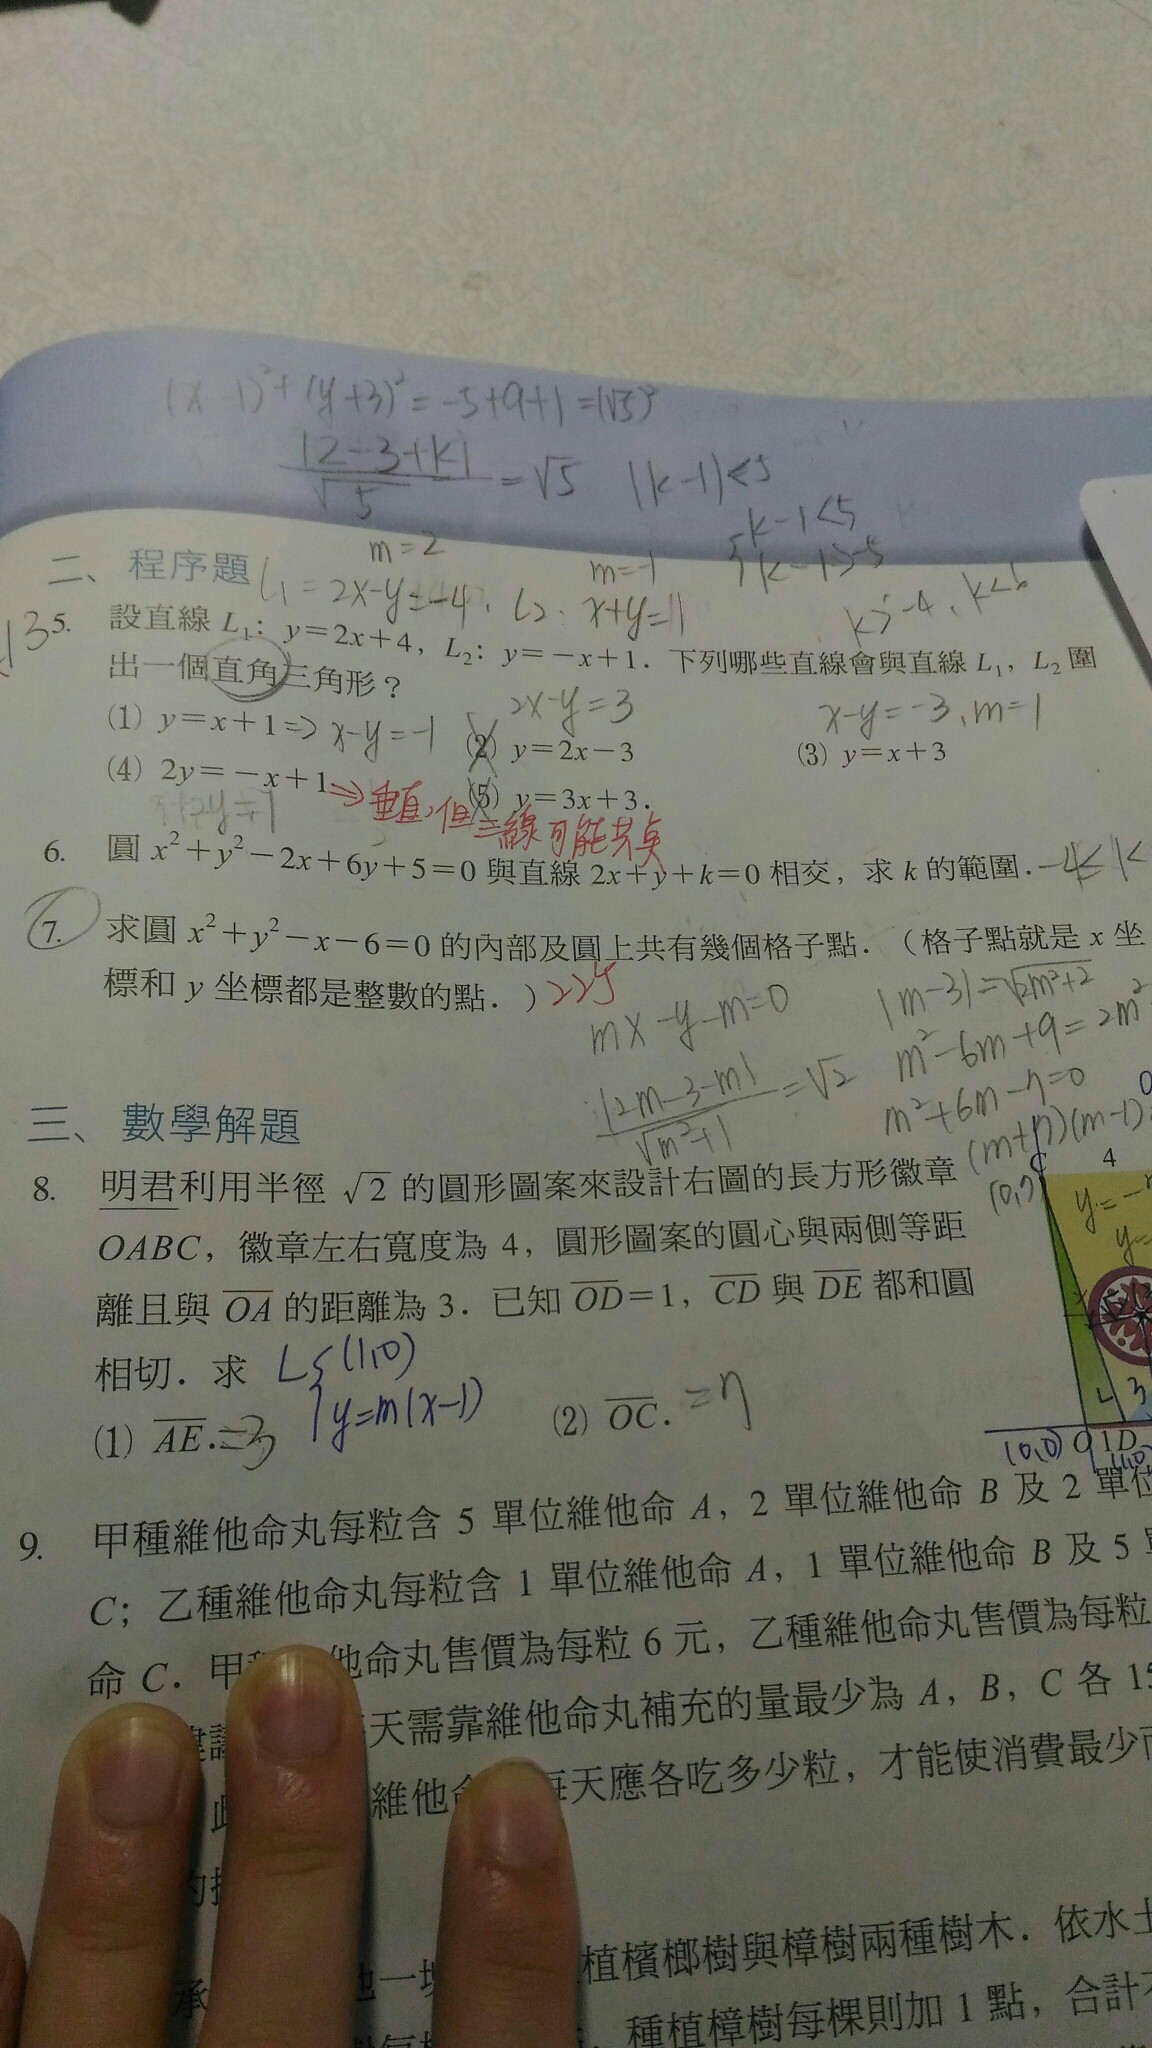 (x-1)²+(y+3)²=-5+9+1=(√5)²
|2-3+k|/√5=√5 |k-1|<5
k-1<5
k-1>-5
k>-4, k<6
m=2 m=-1
二、程序題 L₁=2x-y=-4, L₂: x+y=1
5. 設直線 L₁：y=2x+4，L₂：y=-x+1．下列哪些直線會與直線 L₁，L₂ 圍
出一個直角三角形？
2x-y=3 x-y=-3, m=1
(1) y=x+1 => x-y=-1 (2) y=2x-3 (3) y=x+3
(4) 2y=-x+1 (5) y=3x+3．
x+2y=1 => 垂直，但三線可能共點
6. 圓 x²+y²-2x+6y+5=0 與直線 2x+y+k=0 相交，求 k 的範圍．
7. 求圓 x²+y²-x-6=0 的內部及圓上共有幾個格子點．（格子點就是 x 坐
標和 y 坐標都是整數的點．）
mx-y-m=0 |m-3|=√2m²+2
|2m-3-m|/√m²+1=√2 m²-6m+9=2m²
m²+6m-7=0
(m+7)(m-1)
三、數學解題
8. 明君利用半徑 √2 的圓形圖案來設計右圖的長方形徽章
OABC，徽章左右寬度為 4，圓形圖案的圓心與兩側等距
離且與 OA 的距離為 3．已知 OD=1，CD 與 DE 都和圓
相切．求 L{(1,0)
y=m(x-1)
(1) AE．=3 (2) OC．=7
C 4
(0,7)
y=-
y=
L 3
O 1 D
(0,0) (1,0)
9. 甲種維他命丸每粒含 5 單位維他命 A，2 單位維他命 B 及 2 單位
C；乙種維他命丸每粒含 1 單位維他命 A，1 單位維他命 B 及 5
命 C．甲 他命丸售價為每粒 6 元，乙種維他命丸售價為每粒
天需靠維他命丸補充的量最少為 A，B，C 各 15
維他 每天應各吃多少粒，才能使消費最少
植檳榔樹與樟樹兩種樹木．依水土
種植樟樹每棵則加 1 點，合計